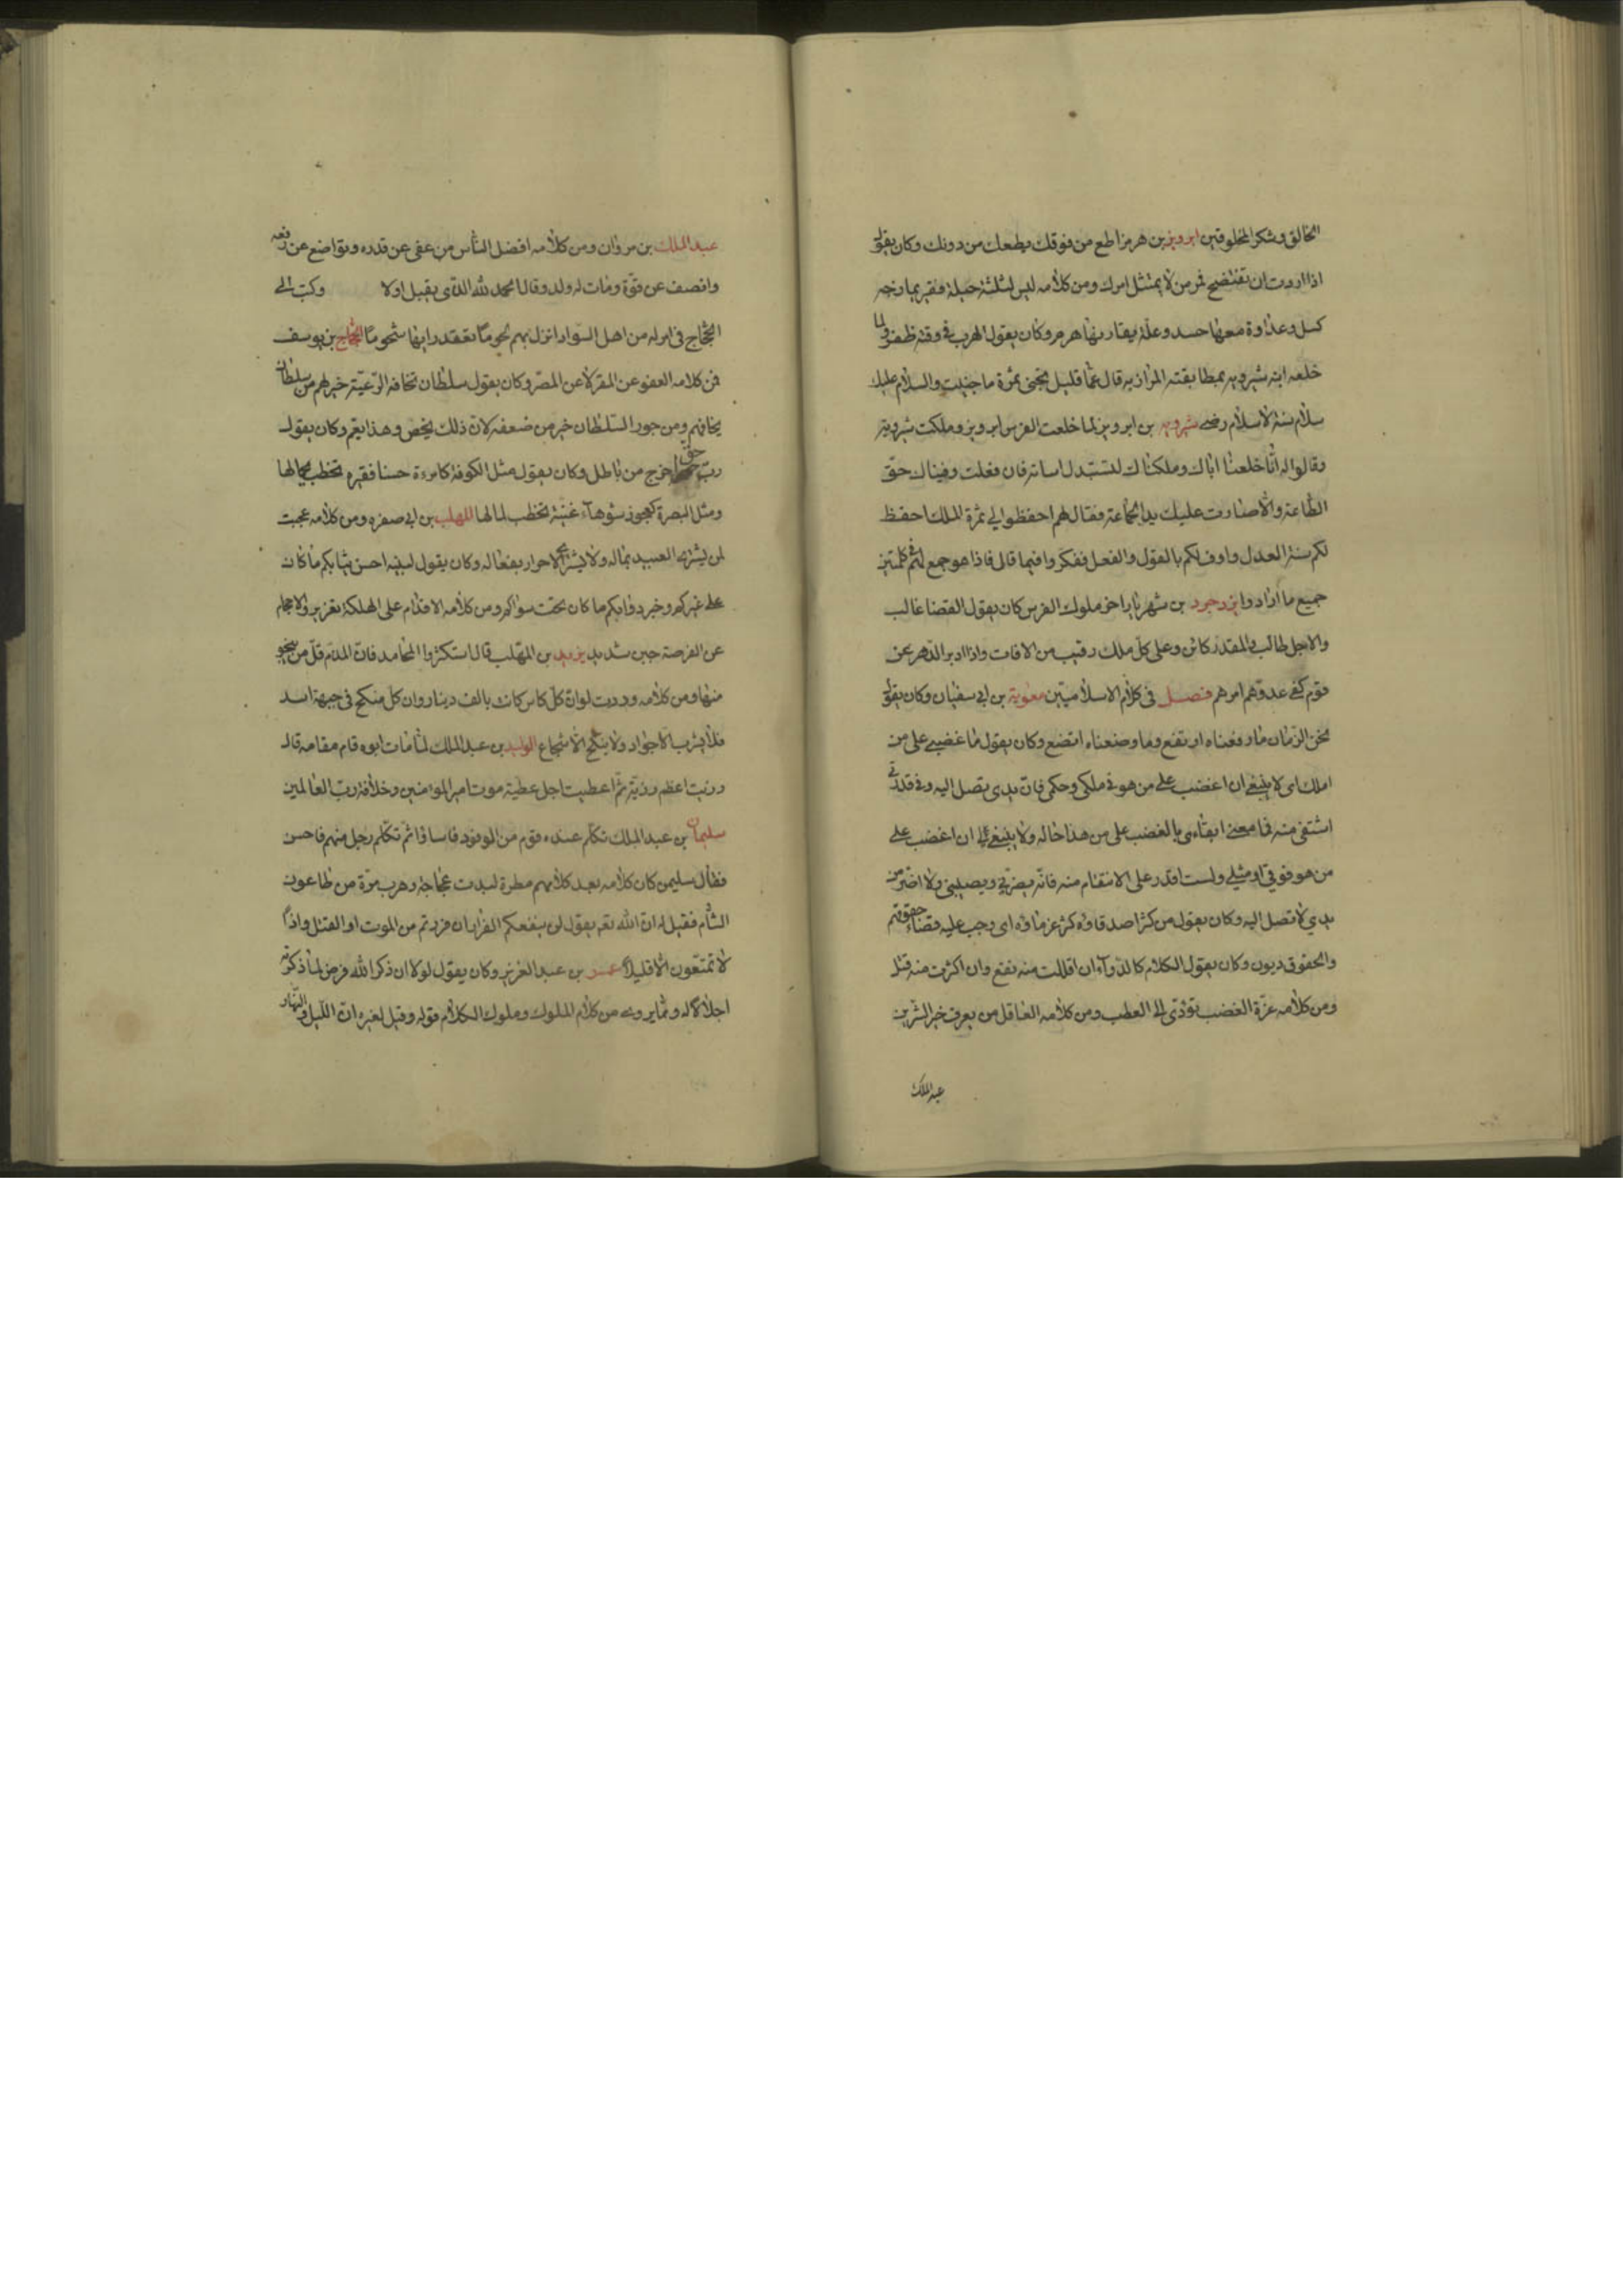 الخالق وشكر المخلوقين ابرويز بن هرمز اطع من فوقك يطعك من دونك وكان يقول
اذا اردت ان تفتضح فمر من لا يمتثل امرك ومن كلامه ليس لثلثة حيلة فقر يمازجه
كسل وعداوة معها حسد وعلة يقارنها هرم وكان يقول الهرب في وقته ظفر ولما
خلعه ابنه شيرويه بمطابقته المرازبه قال عما قليل تجنى ثمرة ما جنيت والسلام عليك
سلام سنة الاسلام رضى شيرويه بن ابرويز لما خلعت الفرس ابرويز وملكت شيرويه
وقالوا له انا خلعنا اباك وملكناك لتستبدل اساته فان فعلت وفيناك حق
الطاعة والا صارت عليك يد الجماعة فقال لهم احفظوا لي ثمرة الملك احفظ
لكم سنة العدل واوف لكم بالقول والفعل ففكروا فيما قال فاذا هو جمع لهم في كلمتين
جميع ما ارادوا يزدجرد بن شهريار اخر ملوك الفرس كان يقول القضا غالب
والاجل طالب والمقدر كائن وعلى كل ملك رقيب من الافات واذا ادبر الدهر عن
قوم كفى عدوهم امرهم فصل في كلام الاسلاميين معوية بن ابي سفيان وكان يقول
نحن الزمان ما رفعناه ارتفع وما وضعناه اتضع وكان يقول ما غضبى على من
املك اى لا ينبغي ان اغضب على من هو في ملكى وحكمى فان يدى تصل اليه وفي قدرتى
اشتفى منه فما معنى ابقاءى بالغضب على من هذا حاله ولا ينبغي لى ان اغضب على
من هو فوقى او مثلى ولست اقدر على الانتقام منه فانه يضربنى ويصيبنى ولا اضر من
يدي لا تصل اليه وكان يقول من كثر اصدقاوه كثر غرماوه اى وجب عليه قضاء حقوقهم
والحقوق ديون وكان يقول الكلام كالدوآء ان اقللت منه نفع وان اكثرت منه قتل
ومن كلامه عزة الغضب تؤدى الى العطب ومن كلامه العاقل من يعرف خير الشرين
عبد الملك
عبد الملك بن مروان ومن كلامه افضل الناس من عفى عن قدره وتواضع عن رفعه
وانصف عن قوة ومات له ولد وقال الحمد لله الذى يقبل اولا وكتب الى
الحجاج في امر له من اهل السواد انزل بهم لحوما تعقد رايها شحوما الحجاج بن يوسف
فمن كلامه العفو عن المقر لا عن المصر وكان يقول سلطان تخافه الرعية خير لهم من سلطان
يخافهم ومن جور السلطان خير من ضعفه لان ذلك يخص وهذا يعم وكان يقول
رب حق خرج من باطل وكان يقول مثل الكوفة كامرءة حسنا فقيره تخطب لجمالها
ومثل البصرة كعجوز شوهآء غنية تخطب لمالها المهلب بن ابي صفره ومن كلامه عجبت
لمن يشترى العبيد بماله ولا يشترى الاحرار بفعاله وكان يقول لبنيه احسن ثيابكم ما كان
على غيركم وخير دوابكم ما كان تحت سواكم ومن كلامه الاقدام على الهلكة تغرير والاحجام
عن الفرصة جبن شديد يزيد بن المهلب قال استكثروا المحامد فان المذم قل من ينجو
منها ومن كلامه وددت لو ان كل كاس كانت بالف دينار وان كل منكح في جبهة اسد
فلا يشرب الا جواد ولا ينكح الا شجاع الوليد بن عبد الملك لما مات ابوه قام مقامه قال
رزيت اعظم رزية ثم اعطيت اجل عطية موت امير المؤمنين وخلافة رب العالمين
سليمان بن عبد الملك تكلم عنده قوم من الوفود فاساؤا ثم تكلم رجل منهم فاحسن
فقال سليمن كان كلامه بعد كلامهم مطرة لبدت عجاجة وهرب مرة من طاعون
الشام فقيل له ان الله تع يقول لن ينفعكم الفرار ان فررتم من الموت او القتل واذا
لا تمتعون الا قليلا عمر بن عبد العزيز وكان يقول لولا ان ذكر الله فرض لما ذكرته
اجلالا له ومما يروى من كلام الملوك وملوك الكلام قوله وقيل لغيره ان الليل والنهار